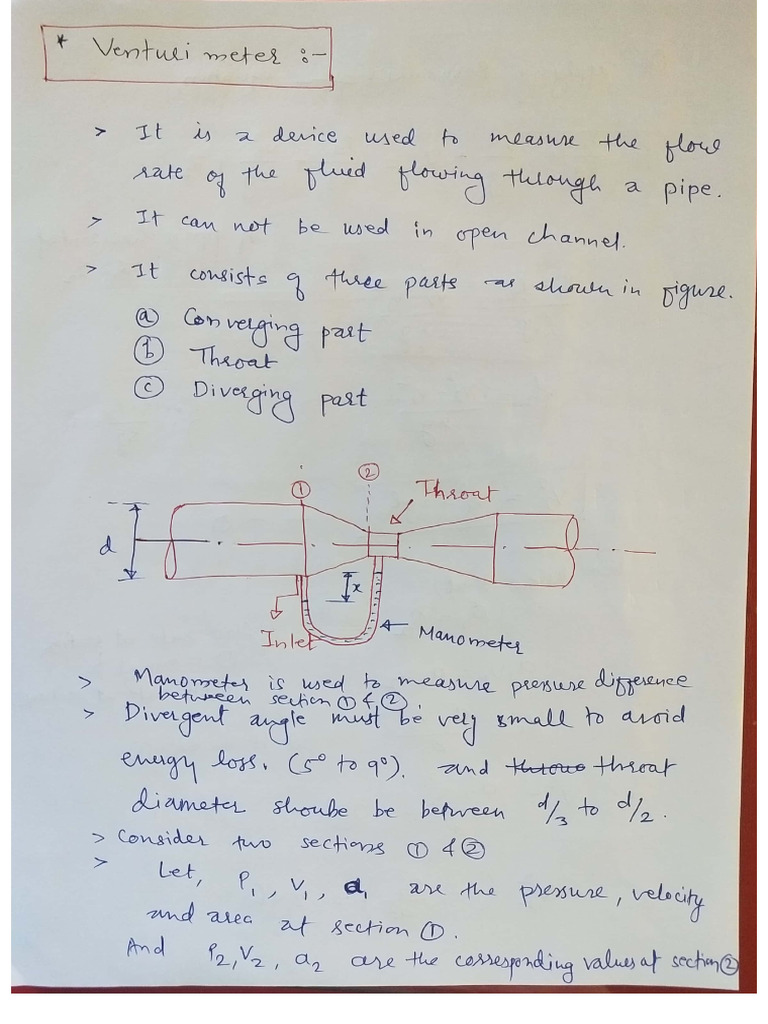 * Venturi meter :-
> It is a device used to measure the flow
rate of the fluid flowing through a pipe.
> It can not be used in open channel.
> It consists of three parts as shown in figure.
ⓐ Converging part
ⓑ Throat
ⓒ Diverging part
① ② Throat
d
x
Inlet Manometer
> Manometer is used to measure pressure difference
between section ① & ②.
> Divergent angle must be very small to avoid
energy loss. (5° to 9°). and throat
diameter shoube be between d/3 to d/2.
> Consider two sections ① & ②
> Let, P₁, V₁, a₁ are the pressure, velocity
and area at section ①.
And P₂, V₂, a₂ are the corresponding values at section ②